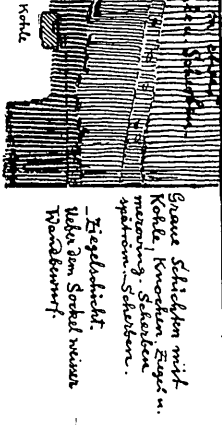 Kohle
Graue Schichten mit
Kohle, Knochen, Ziegel u.
meroving. Scherben
spätröm. Scherben.
Ziegelschicht.
Ueber dem Sockel weisser
Wandbewurf.